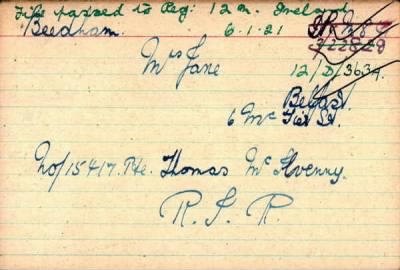 File passed to Reg: 12 m. Ireland
Beedham. 6.1.21
Mrs Jane 12/D/3634.
Belfast.
6 Mc Tier St.
No/15417. Pte. Thomas Mc Ilvenny.
R. I. R.